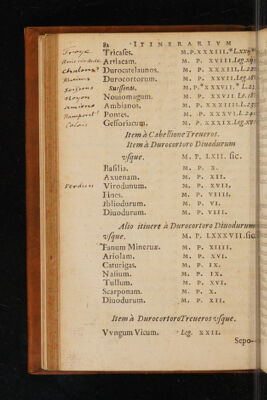 82 ITINERARIVM
Troyes Tricases. M. P. XXXIII.
Artiacam. M. P. XVIII.
Chalons Durocatelaunos. M. P. XXXIII.
Durocortorum. M. P. XXVII.
Soissons Suessonas. M. P. XXXVII.
Noyon Nouiomagum. M. P. XXVII.
Amiens Ambianos. M. P. XXXIIII.
Pontes. M. P. XXXVI.
Calais Gessoriacum. M. P. XXXIX.
Item à Cabellione Treueros.
Item à Durocortoro Diuodurum
vsque. M. P. LXII. sic.
Basilia. M. P. X.
Axuenam. M. P. XII.
Verdun Virodunum. M. P. XVII.
Fines. M. P. VIIII.
Ibliodurum. M. P. VI.
Diuodurum. M. P. VIII.
Alio itinere à Durocortoro Diuodurum
vsque. M. P. LXXXVII. sic.
Fanum Mineruæ. M. P. XIIII.
Ariolam. M. P. XVI.
Caturigas. M. P. IX.
Nasium. M. P. IX.
Tullum. M. P. XVI.
Scarponam. M. P. X.
Diuodurum. M. P. XII.
Item à Durocortoro Treueros vsque.
Vvngum Vicum. Leg. XXII.
Sepo-